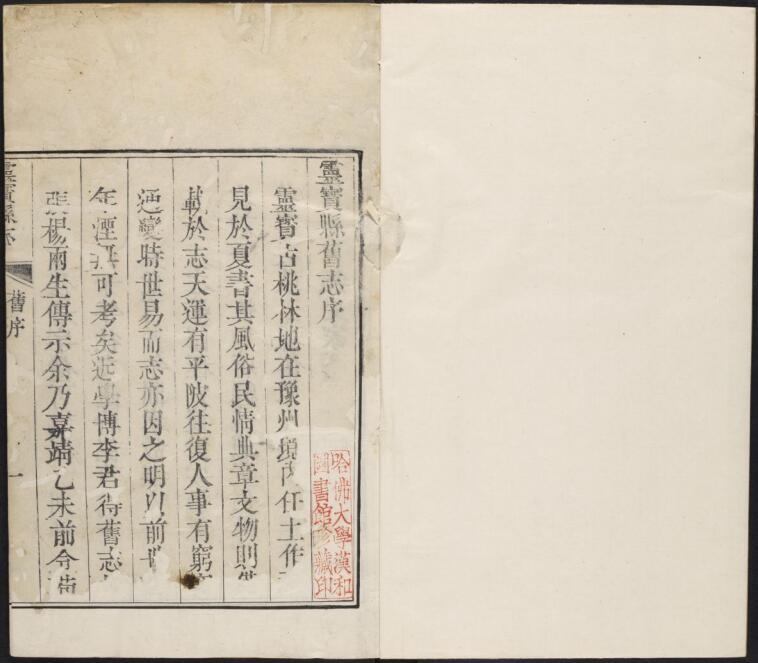 靈寶縣舊志序
靈寶古桃林地在豫州任土作
見於夏書其風俗民情典章文物則
載於志天運有平陂往復人事有窮
通變時世易而志亦因之明以前
年湮可考矣近學博李君得舊志
楊雨生傳示余乃嘉靖乙未前令
靈寶縣志
舊序
一
哈佛大學漢和
圖書館珍藏印